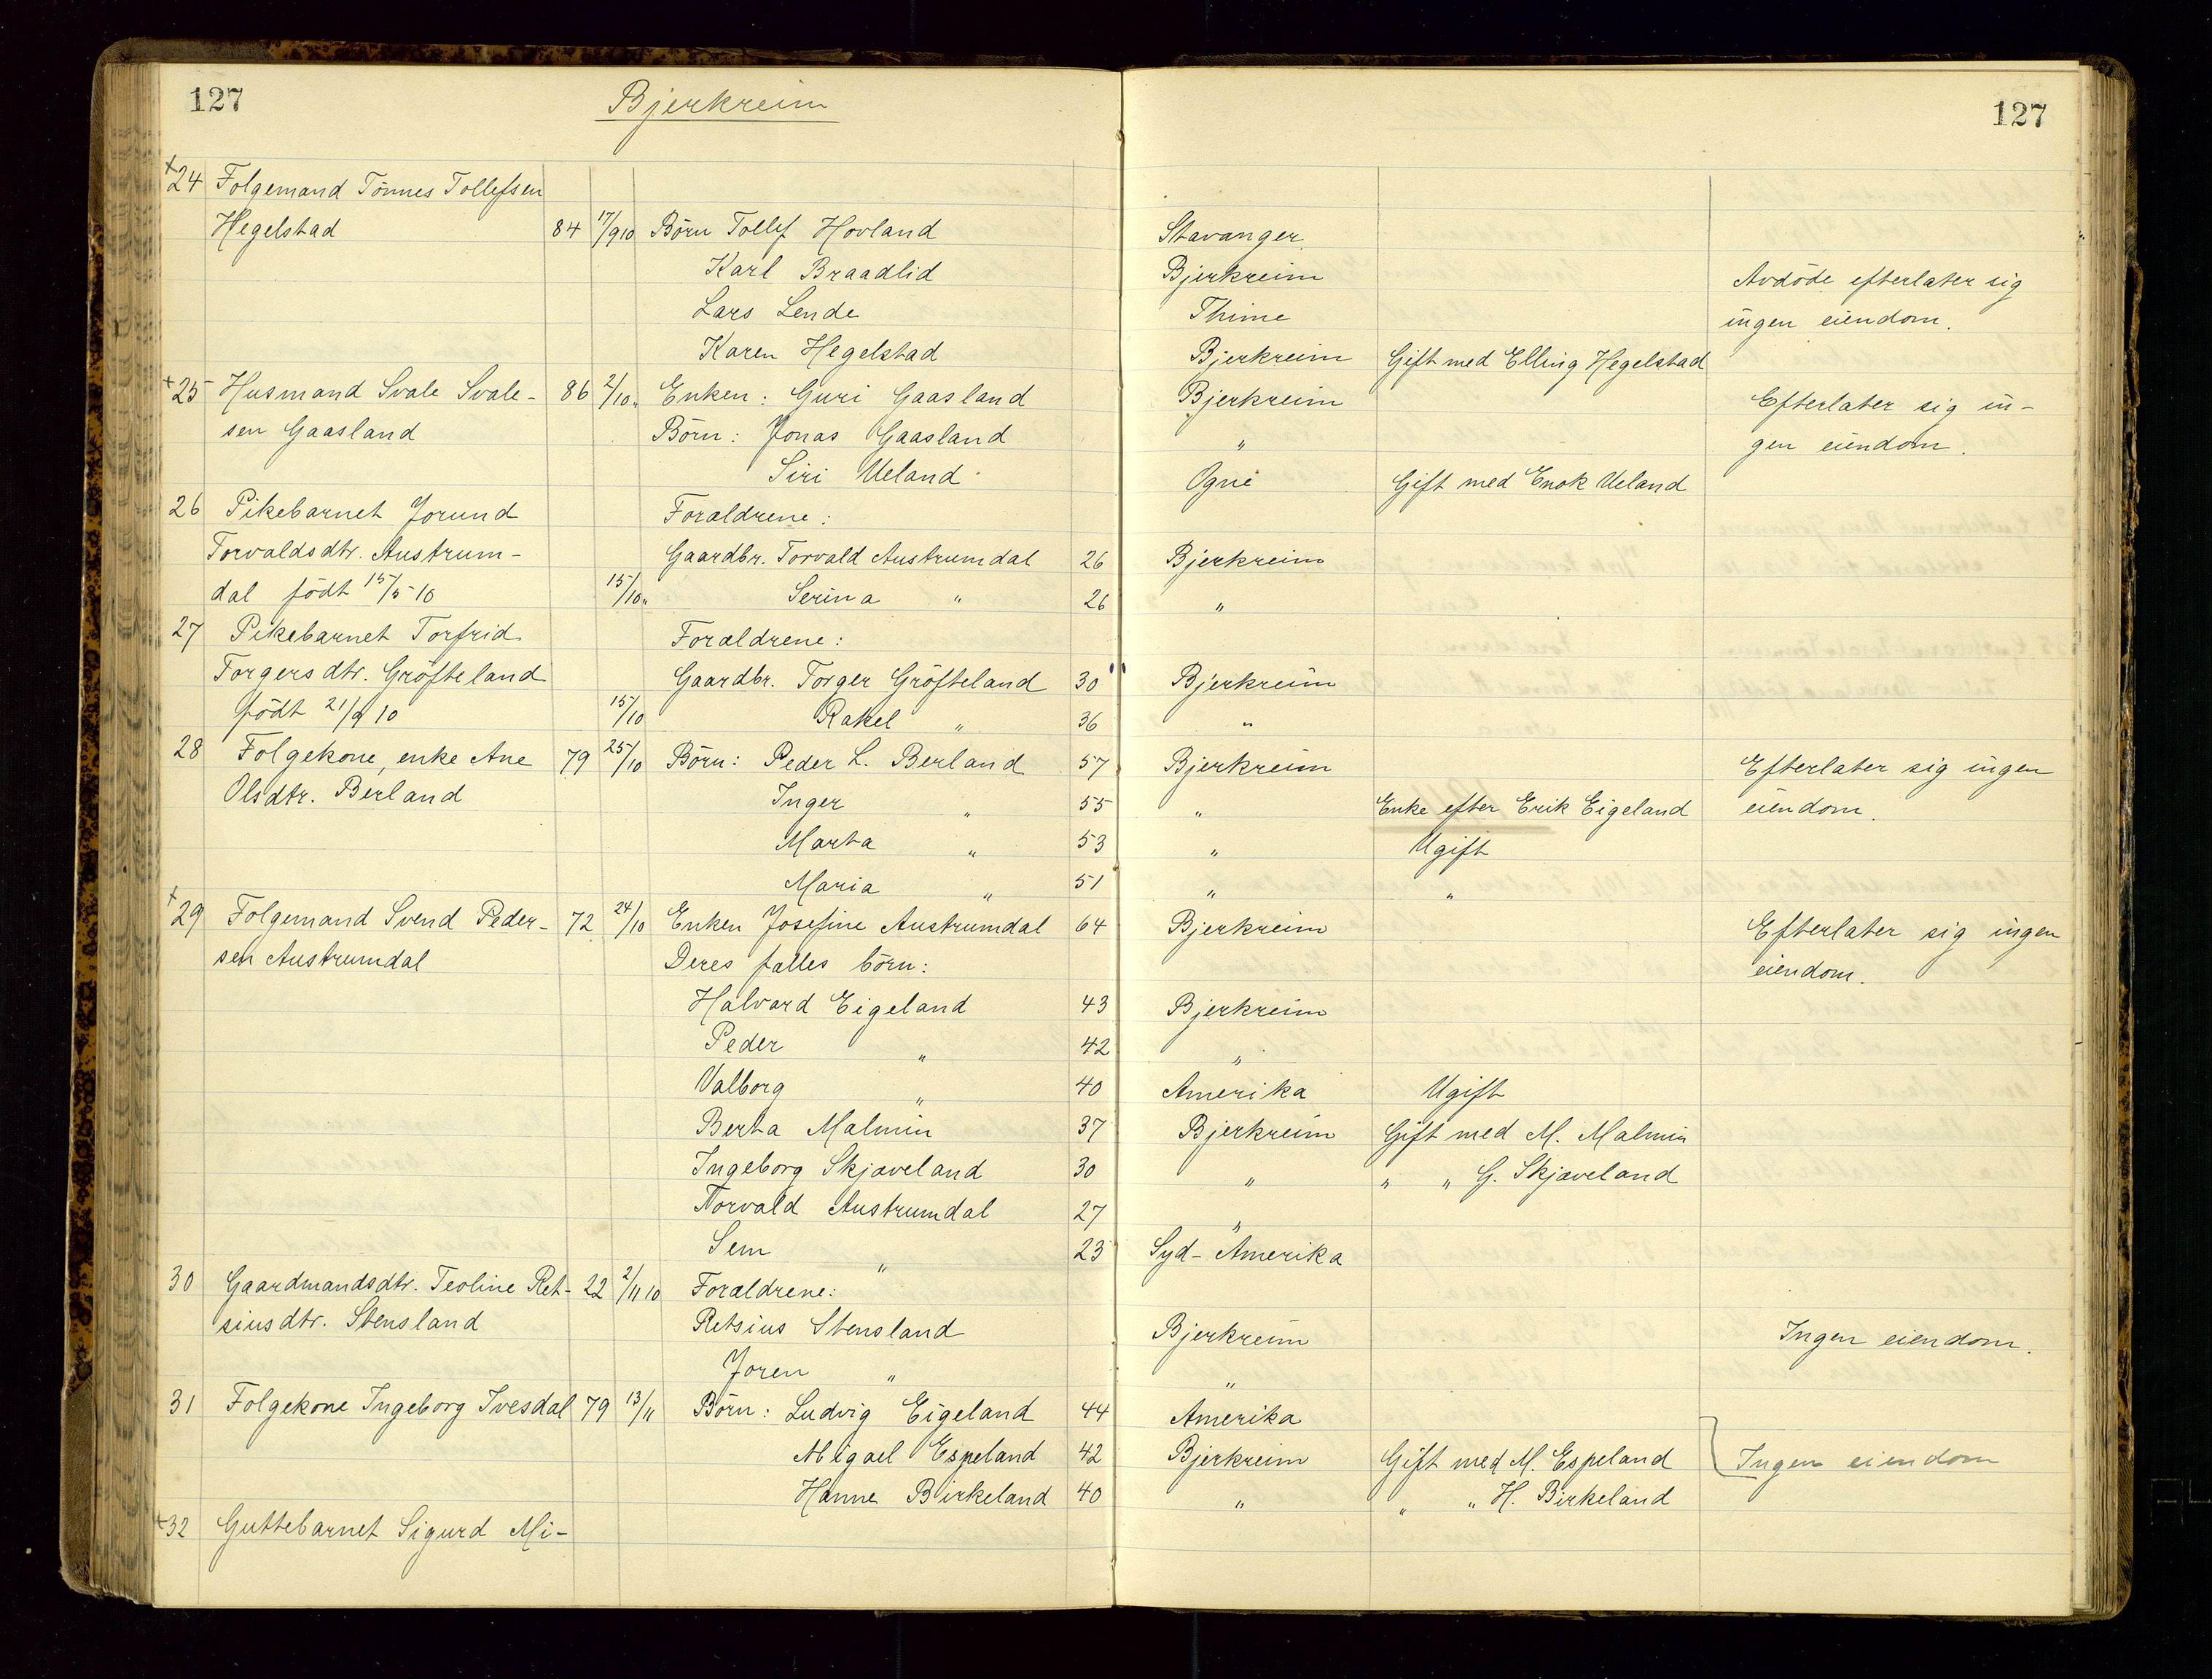 127 Bjerkreim 127
+24 Folgemand Tönnes Tollefsen
Hegelstad 84 17/9 10 Börn Tollef Hovland Stavanger
Karl Braadlid Bjerkreim Avdöde efterlater sig
Lars Lende Thime ingen eiendom.
Karen Hegelstad Bjerkreim Gift med Elling Hegelstad
+25 Husmand Svale Svale- 86 2/10 " Enken: Guri Gaasland Bjerkreim Efterlater sig in-
sen Gaasland Börn: Jonas Gaasland " gen eiendom.
Siri Ueland Ogne Gift med Enok Ueland
26 Pikebarnet Jorund Forældrene:
Torvaldsdtr. Austrum- Gaardbr. Torvald Austrumdal 26 Bjerkreim
dal födt 15/5 10 15/10 " Serina " 26 "
27 Pikebarnet Torfrid Forældrene:
Torgersdtr. Gröfteland Gaardbr. Torger Gröfteland 30 Bjerkreim
födt 21/9 10 15/10 Rakel " 36 "
28 Folgekone, enke Ane 79 25/10 Börn: Peder L. Berland 57 Bjerkreim Efterlater sig ingen
Olsdtr. Berland Inger " 55 " Enke efter Erik Eigeland eiendom.
Marta " 53 " Ugift
Maria " 51 " "
+29 Folgemand Svend Peder- 72 24/10 Enken Josefine Austrumdal 64 Bjerkreim Efterlater sig ingen
sen Austrumdal Deres fælles börn: eiendom.
Halvard Eigeland 43 Bjerkreim
Peder " 42 "
Valborg " 40 Amerika Ugift
Berta Malmin 37 Bjerkreim Gift med M. Malmin
Ingeborg Skjæveland 30 " " " G. Skjæveland
Torvald Austrumdal 27 "
Sem " 23 Syd-Amerika
30 Gaardmandsdtr. Teoline Ret- 22 2/11 10 Forældrene:
siusdtr. Stensland Retsius Stensland Bjerkreim Ingen eiendom.
Joren " "
31 Folgekone Ingeborg Ivesdal 79 13/11 Börn: Ludvig Eigeland 44 Amerika
Abigael Espeland 42 Bjerkreim Gift med M. Espeland Ingen eiendom
Hanne Birkeland 40 " " " H. Birkeland
+32 Guttebarnet Sigurd Mi-